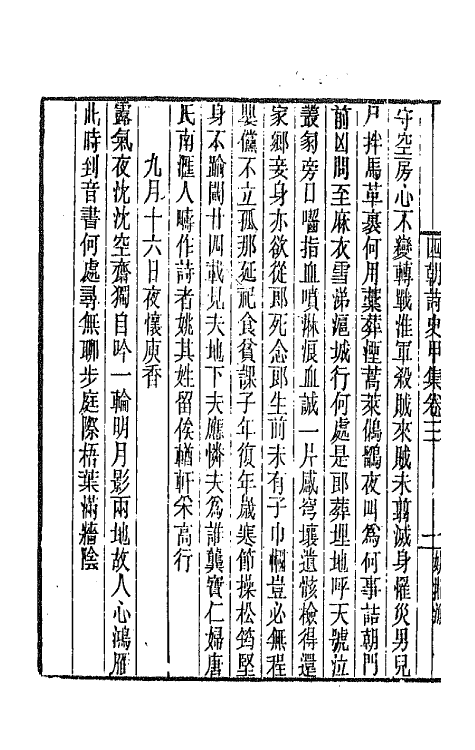 四朝詩史甲集卷三
守空房心不變轉戰淮軍殺賊來賊未翦滅身罹災男兒
尸拌馬革裹何用藁葬溼蒿萊鵂鶹夜叫為何事詰朝門
前凶問至麻衣雪涕滬城行何處是郎葬埋地呼天號泣
叢冢旁口嚙指血噴淋痕血誠一片感穹壤遺骸檢得還
家鄉妾身亦欲從郎死念郎生前未有子巾幗豈必無程
嬰儻不立孤那延祀食貧課子年復年歲寒節操松筠堅
身不踰閾廿四載見夫地下夫應憐夫為誰龔寶仁婦唐
氏南滙人疇作詩者姚其姓留俟輶軒采高行
九月十六日夜懷庾香
露氣夜沈沈空齋獨自吟一輪明月影兩地故人心鴻雁
此時到音書何處尋無聊步庭際梧葉滿牆陰